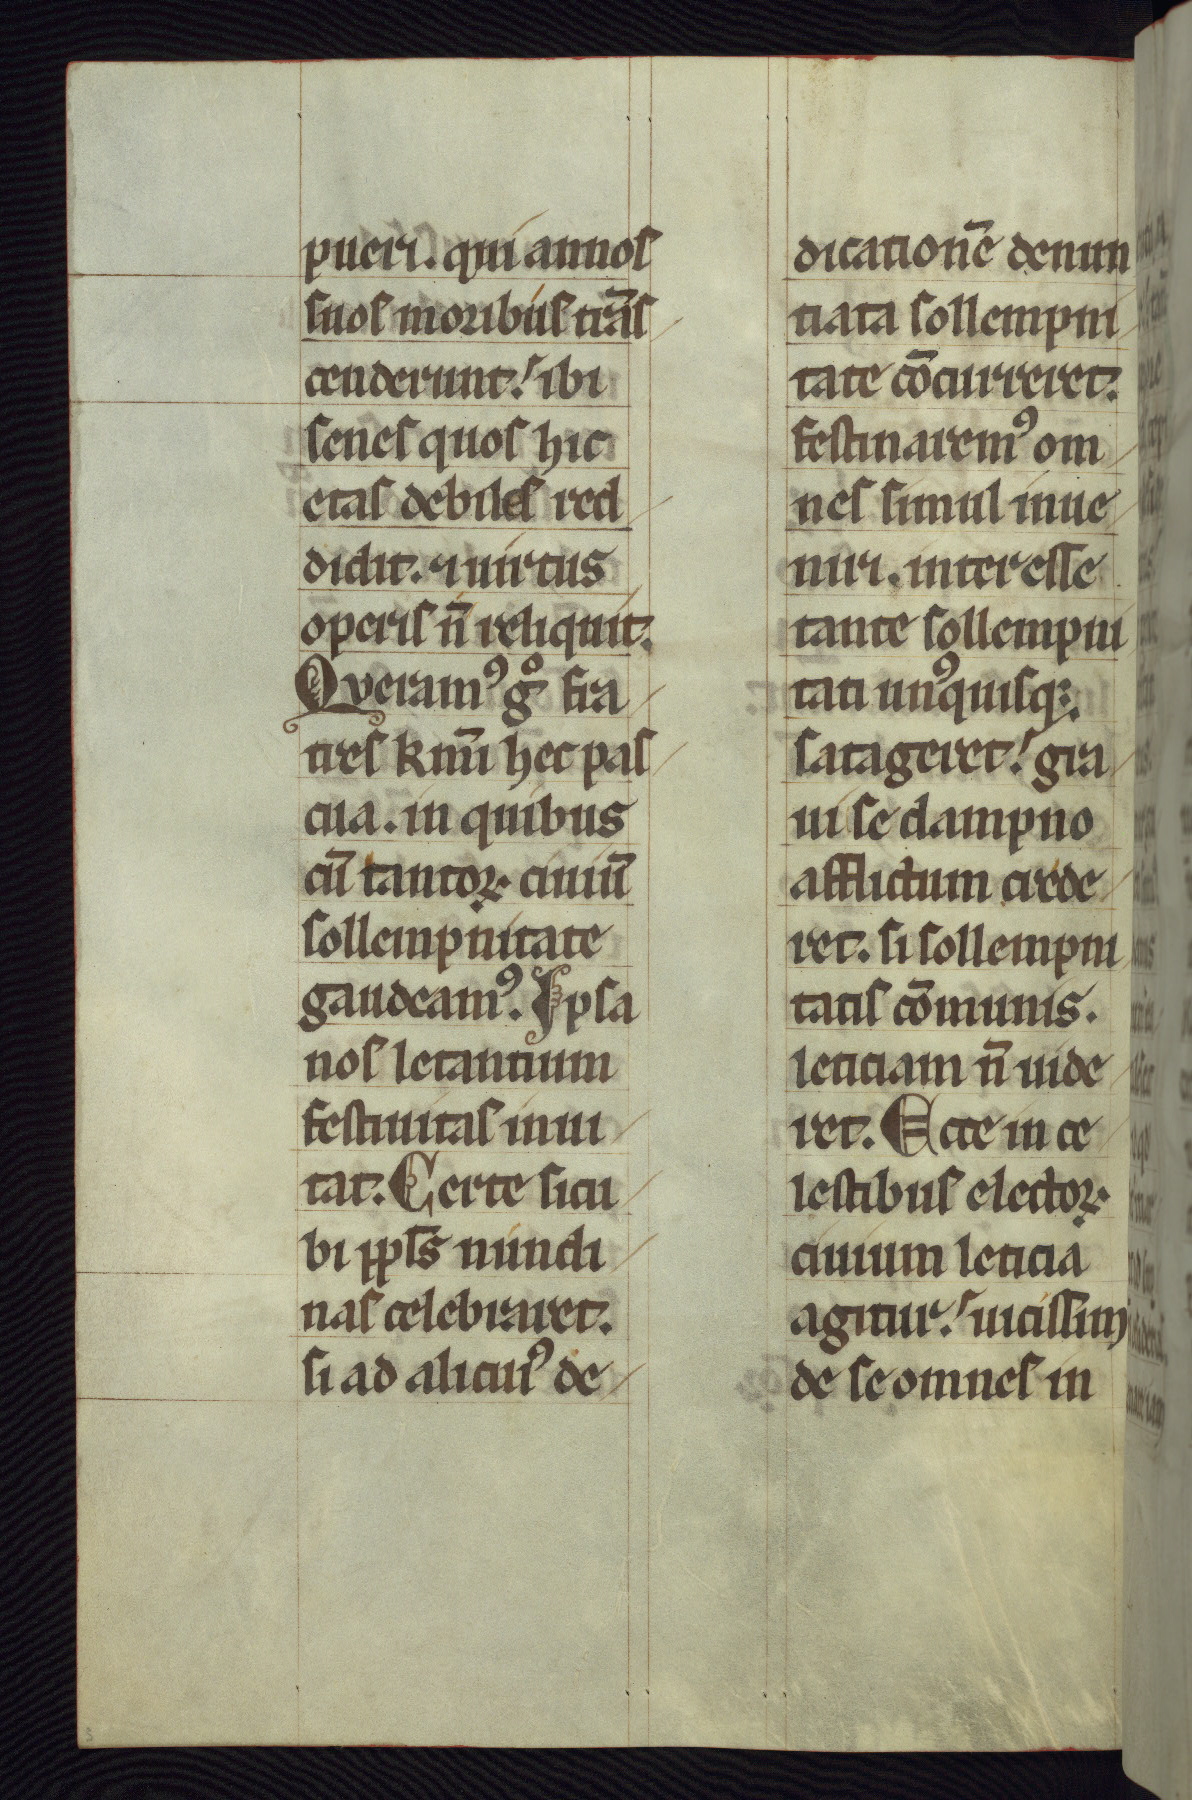 pueri. qui annos
suos moribus trās
cenderunt. ibi
senes quos hic
etas debiles red
didit. ⁊ uirtus
operis n̄ reliquit.
Queramꝰ gͦ fra
tres kmī hec pas
cua. in quibus
cū tantoꝝ ciuiū
sollempnitate
gaudeamꝰ. Ipsa
nos letantium
festiuitas inui
tat. Certe sicu
bi pp̄ls nundi
nas celebraret.
si ad alicuiꝰ de
dicationē denun
tiata sollempni
tate cōcurreret.
festinaremꝰ om
nes simul inue
niri. interesse
tante sollempni
tati unꝰquisqꝫ.
satageret. gra
ui se dampno
afflictum crede
ret. si sollempni
tatis cōmunis.
leticiam n̄ uide
ret. Ecce in ce
lestibus electoꝝ
ciuium leticia
agitur. uicissim
de se omnes in